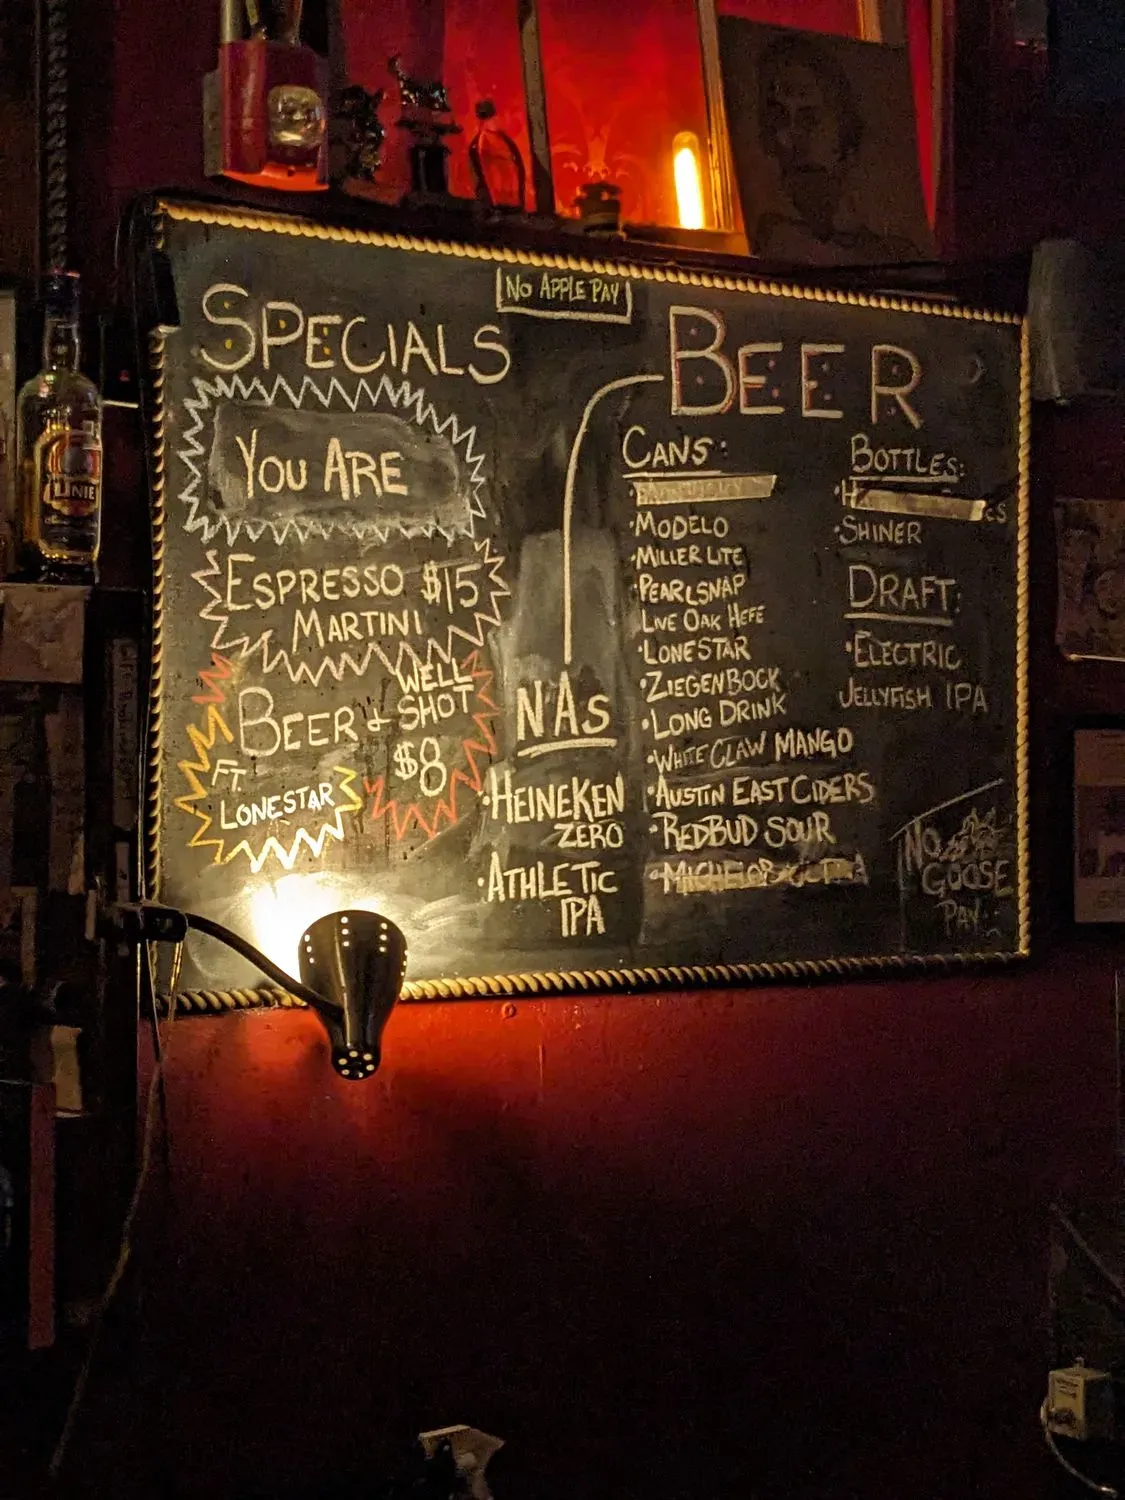 NO APPLE PAY
SPECIALS
YOU ARE
ESPRESSO $15
MARTINI
BEER & WELL SHOT
$8
FT.
LONESTAR
BEER
NAs
HEINEKEN
ZERO
·ATHLETIC
IPA
CANS:
·MODELO
·MILLER LITE
·PEARLSNAP
LIVE OAK HEFE
·LONESTAR
·ZIEGENBOCK
·LONG DRINK
·WHITE CLAW MANGO
·AUSTIN EAST CIDERS
·REDBUD SOUR
BOTTLES:
·SHINER
DRAFT:
·ELECTRIC
JELLYFISH IPA
NO
GOOSE
PAY
LINIE